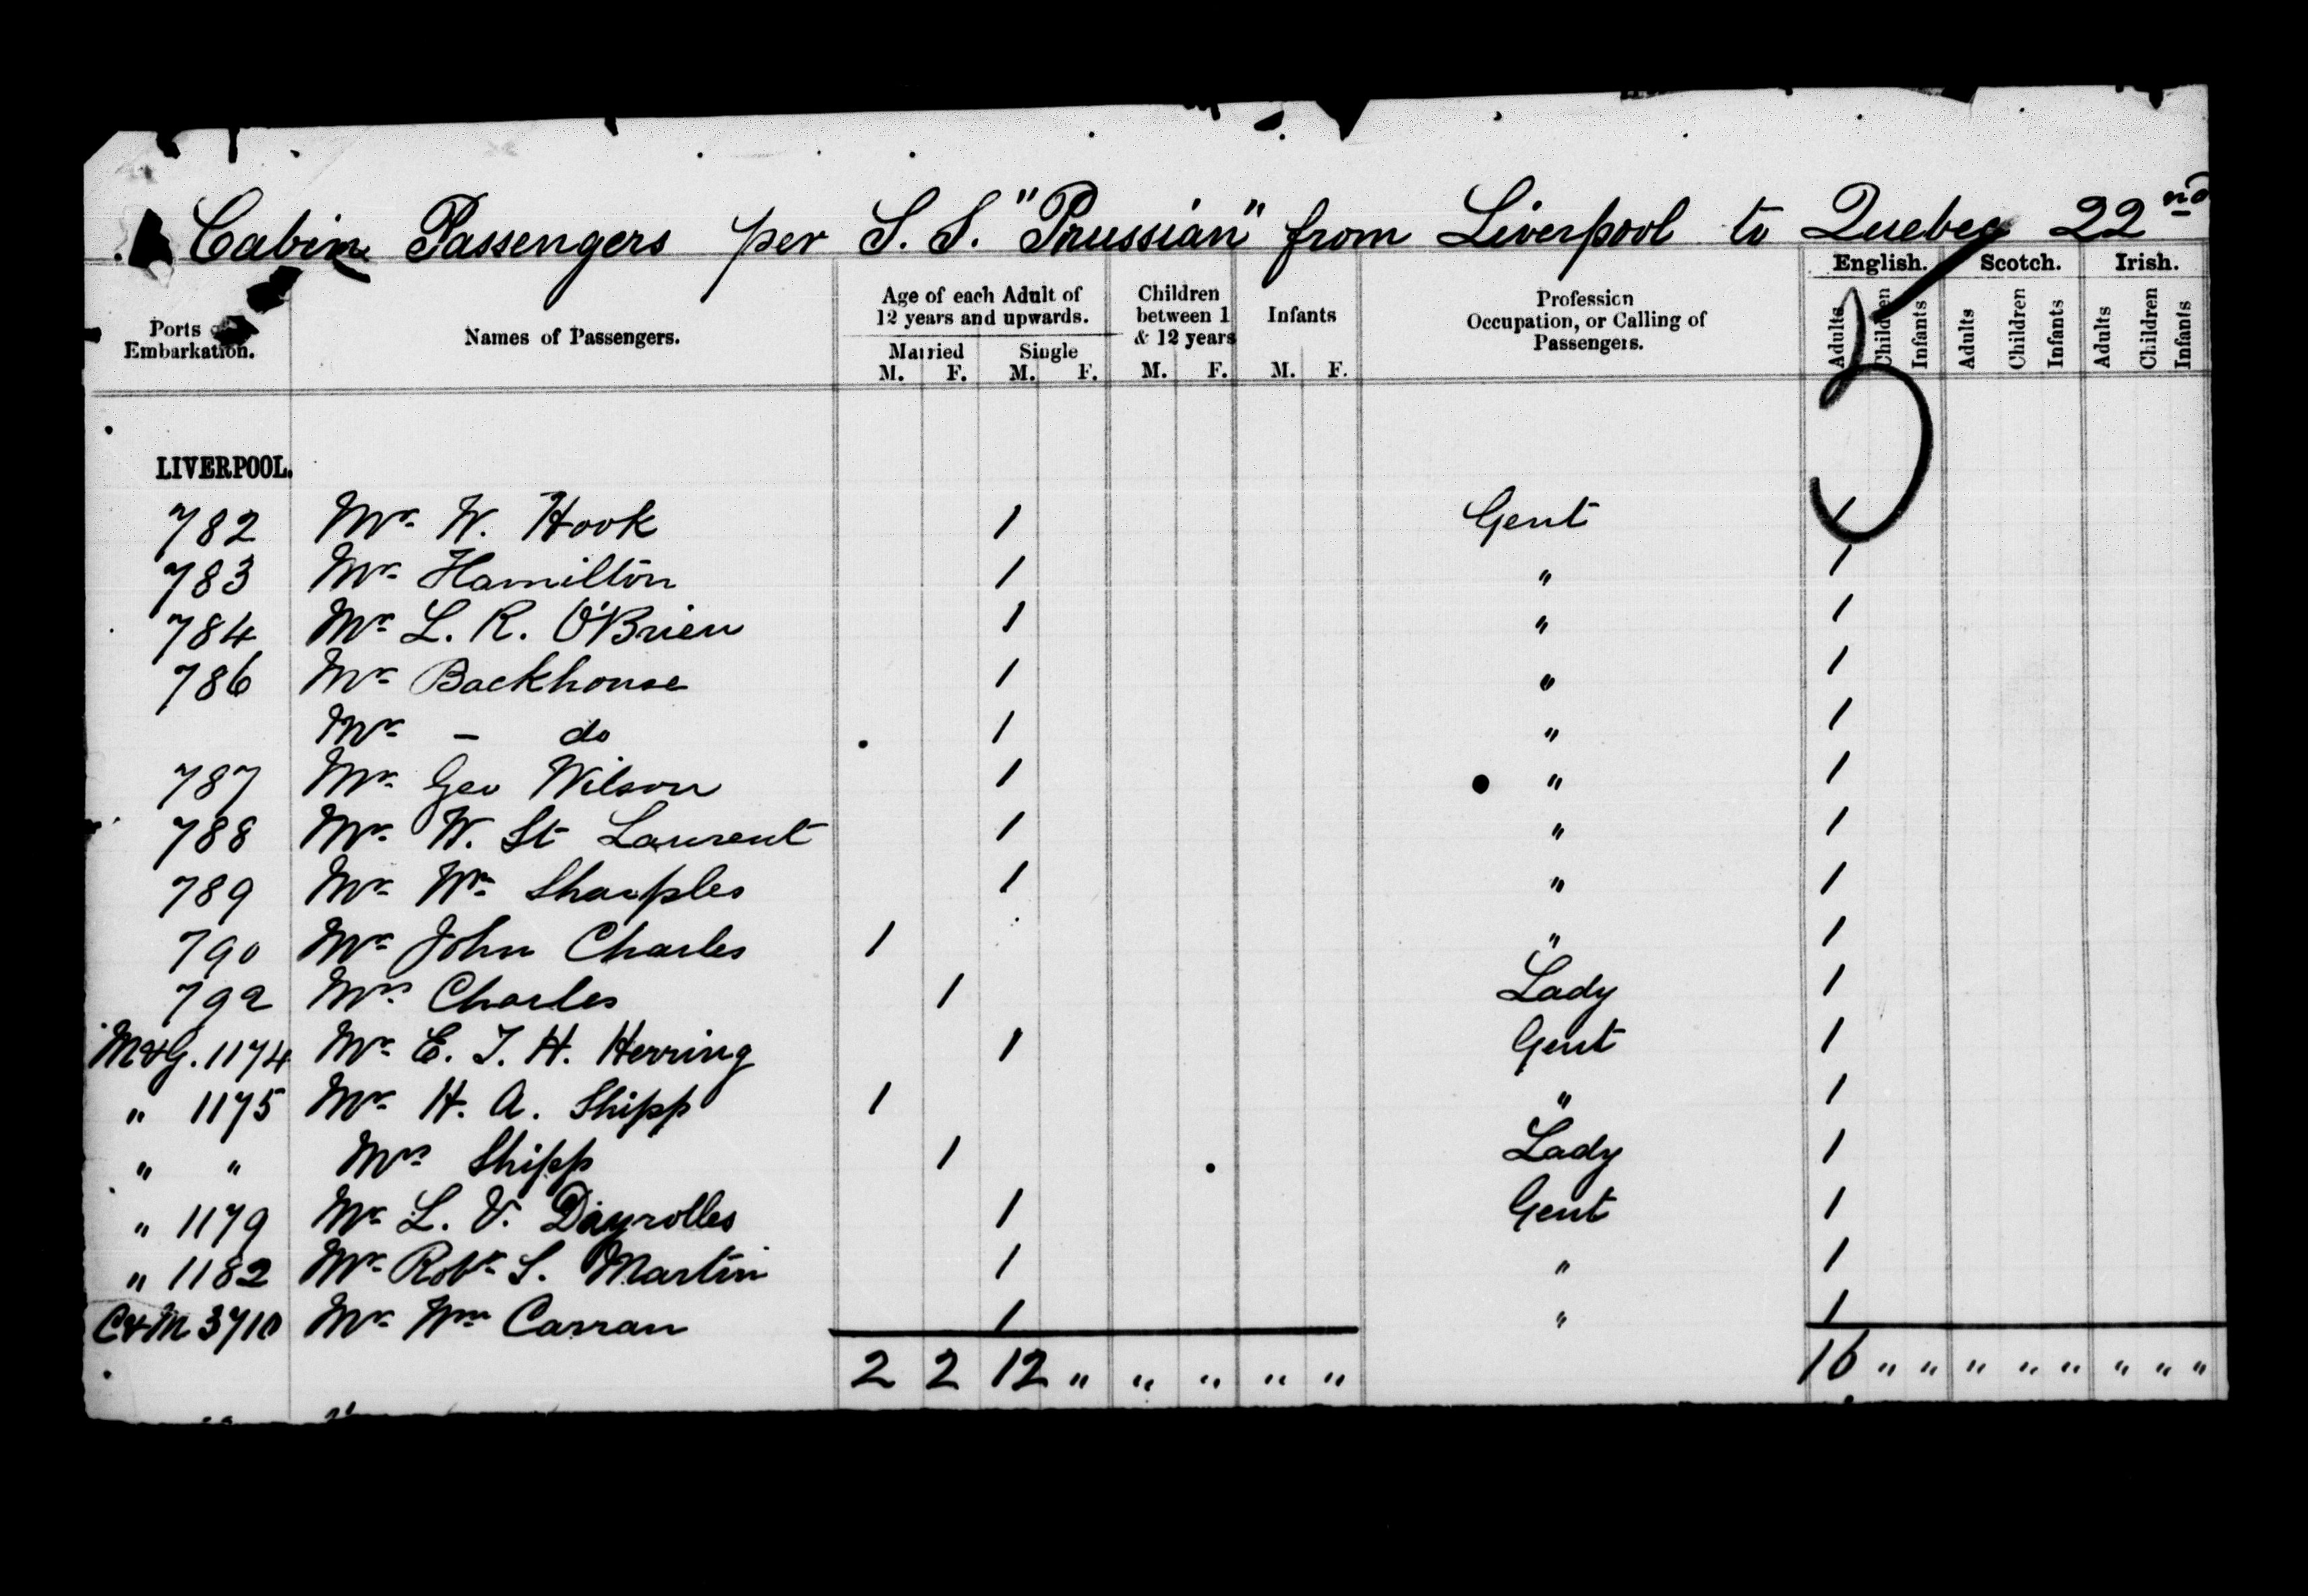 Cabin Passengers per S.S. "Prussian" from Liverpool to Quebec 22nd
English. Scotch. Irish.
Ports Embarkation. Names of Passengers. Age of each Adult of 12 years and upwards. Children between 1 & 12 years Infants Profession Occupation, or Calling of Passengers. Adults Children Infants Adults Children Infants Adults Children Infants
Married Single
M. F. M. F. M. F. M. F.
5
LIVERPOOL.
782 Mr. W. Hook 1 Gent 1
783 Mr. Hamilton 1 " 1
784 Mr. L. R. O'Brien 1 " 1
786 Mr. Backhouse 1 " 1
Mr. - do 1 " 1
787 Mr. Geo Wilson 1 " 1
788 Mr. W. St Laurent 1 " 1
789 Mr. Wm Sharples 1 " 1
790 Mr. John Charles 1 " 1
792 Mrs. Charles 1 Lady 1
M&G. 1174 Mr. E. T. H. Herring 1 Gent 1
" 1175 Mr. H. A. Shipp 1 " 1
" " Mrs Shipp 1 Lady 1
" 1179 Mr. L. V. Dayrolles 1 Gent 1
" 1182 Mr. Robt. S. Martin 1 " 1
C&M 3710 Mr. Wm Carran 1 " 1
2 2 12 " " " " " 16 " " " " " " " "